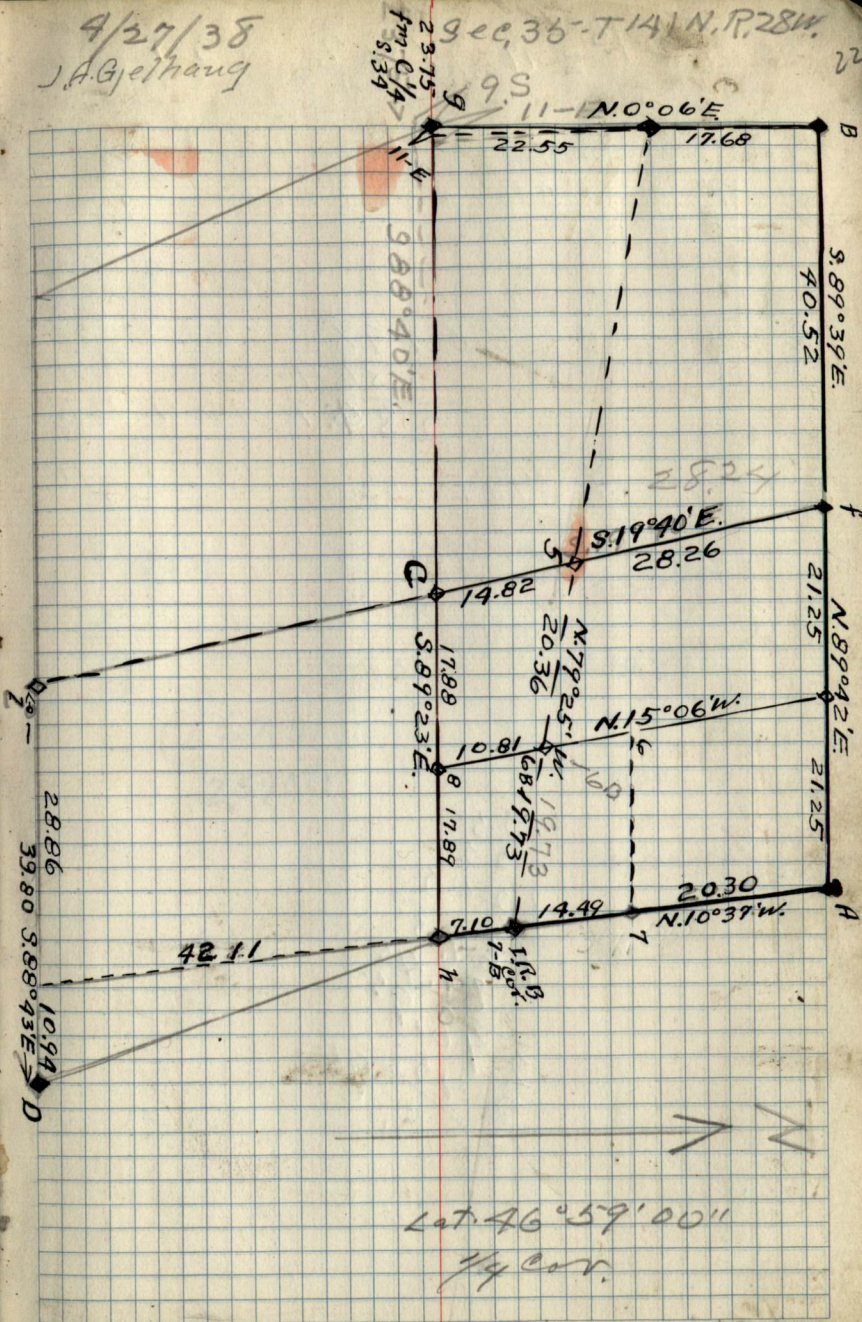 4/27/38
Sec. 35-T141N. R.28W.
22
J.A. Gjelhaug
23.75
fm C 1/4
S.34
g
9.S
11-E
N.0°06'E.
22.55
17.68
B
S.89°39'E.
40.52
S88°40'E.
28.24
f
S.19°40'E.
28.26
5
C
14.82
21.25
N.89°42'E.
21.25
17.88
S.89°23'E.
17.89
N.79°25'W.
20.36
N.15°06'W.
10.81
e
6
6B
6B
19.73
19.73
20.30
N.10°37'W.
A
14.49
7
7.10
I.R.B
Cor.
7-B
h
42.11
28.86
39.80 S.88°43'E
10.94
D
N
Lat. 46°59'00"
1/4 Cor.